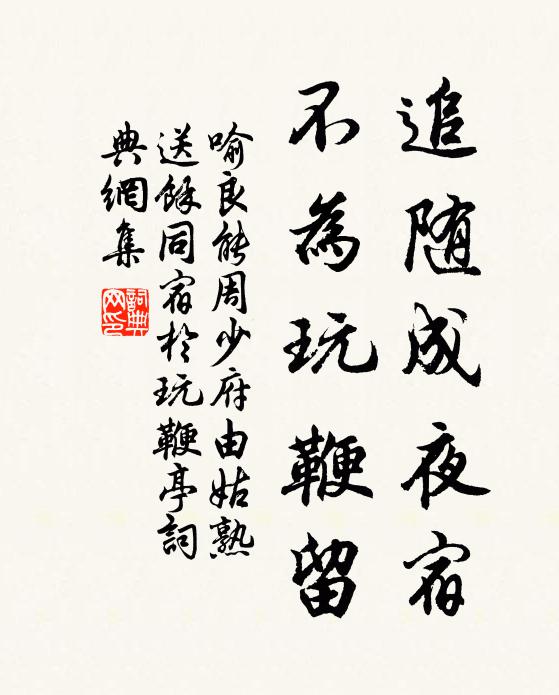 追随成夜宿
不為玩鞭留
喻良能周少府由姑熟
送餘同宿於玩鞭亭詞
典網集
詞典
网印